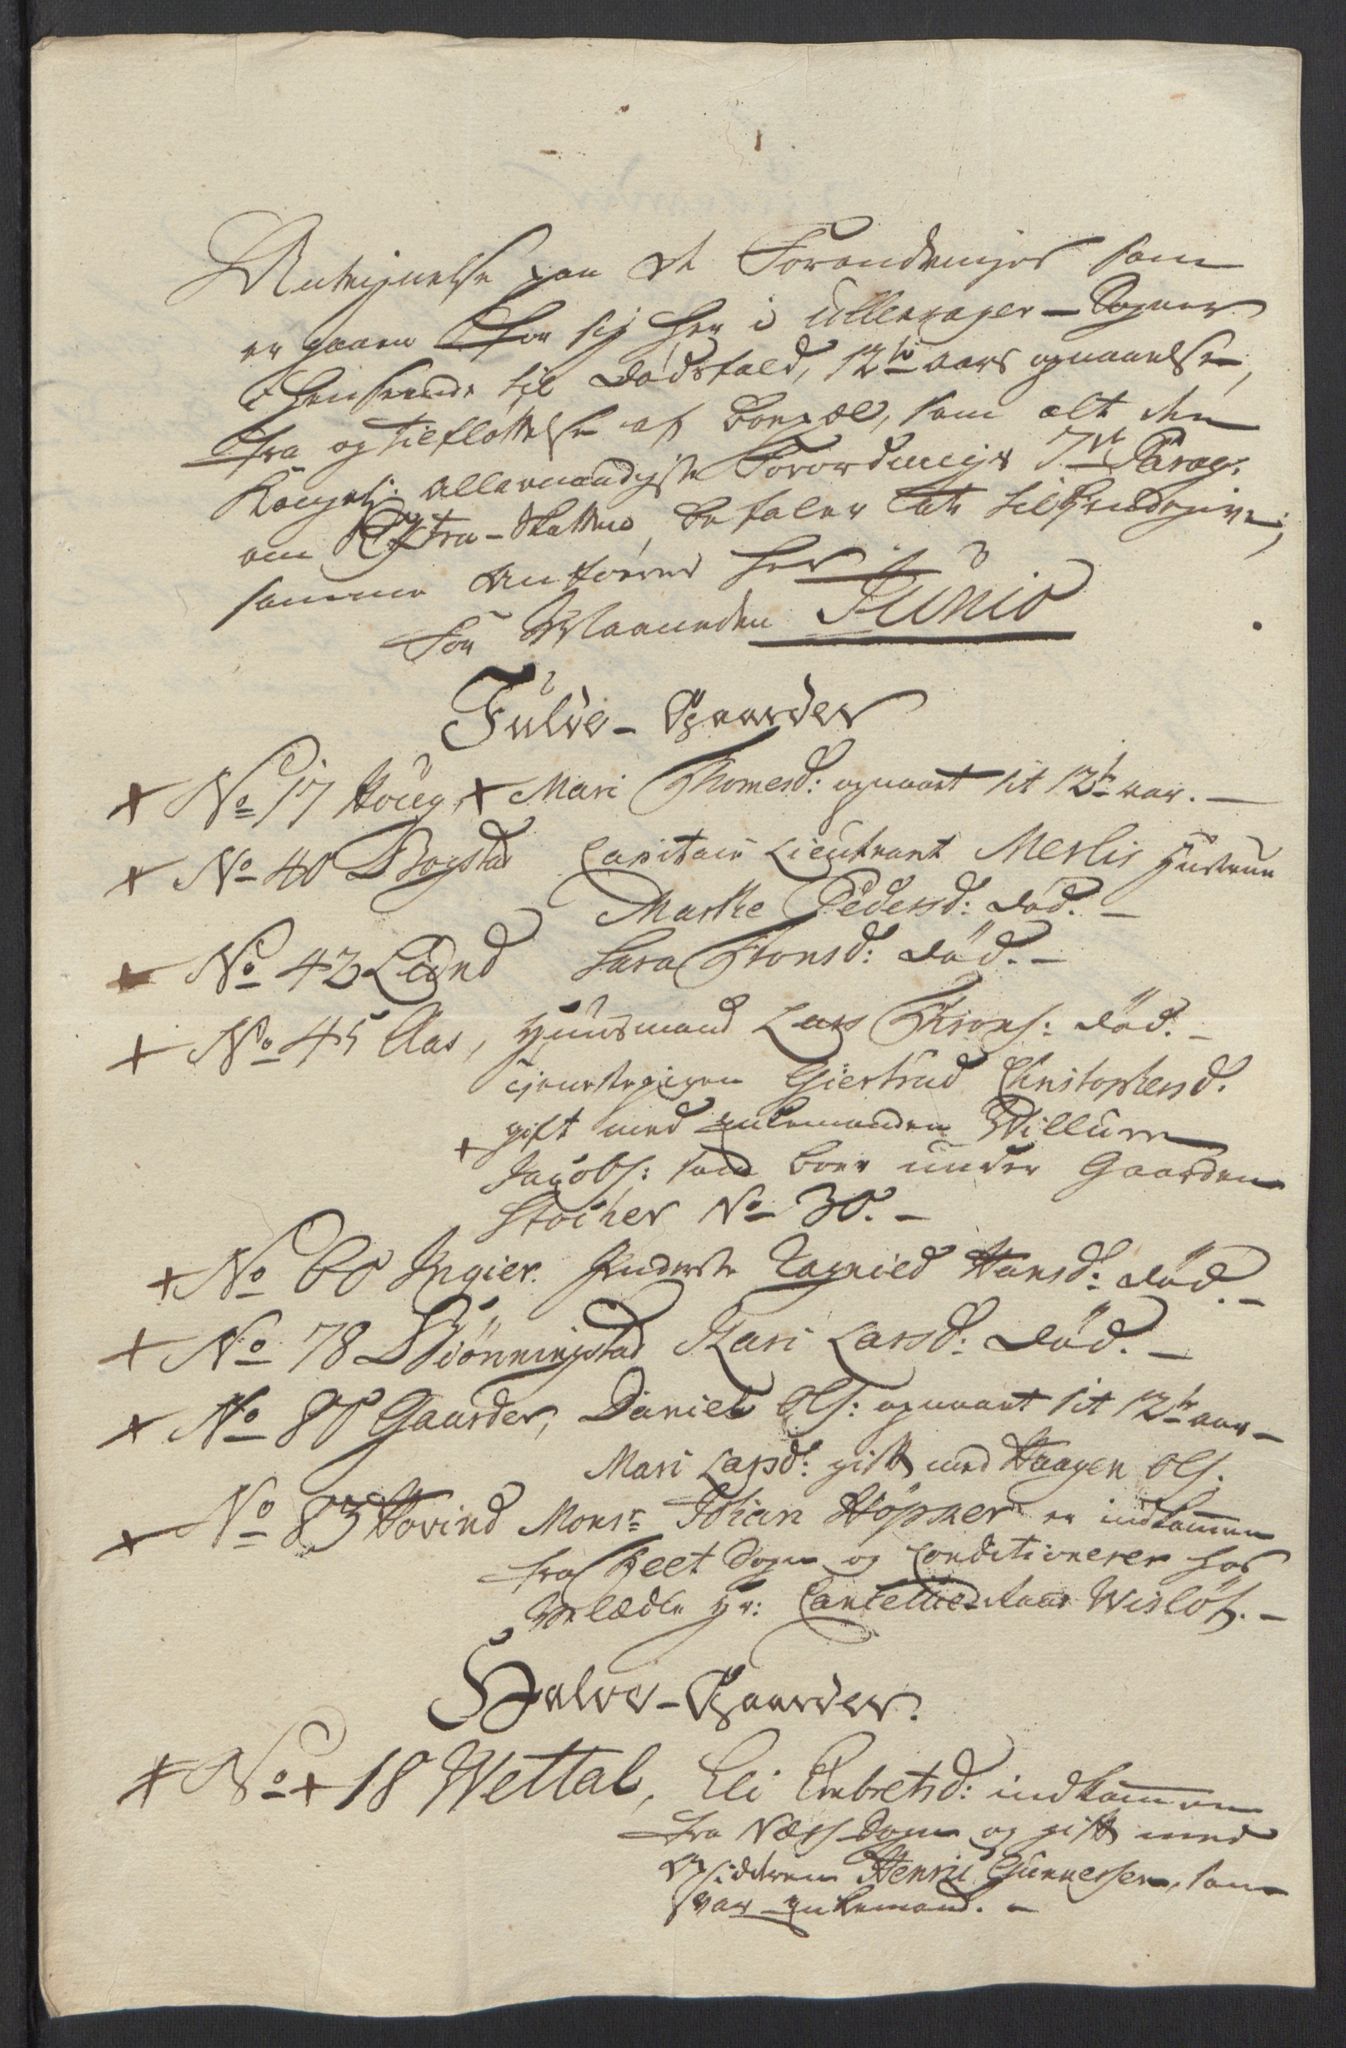 Antegnelse paa de Forandringer som
er gaaen for sig her i Ullensager-Sogner
i henseende til dødsfald, 12te aars opnaaelse,
fra og tilfløttelse af boepæl, som alt den
Kongel: allernaadigste Forordnings 7de Parag:
om Extra-Skatten, befaler at tilkiendegive;
samme anføres her
for Maaneden Junio
Fulde-Gaarder
+ No 17 Houg, + Mari Thomesd: opnaaet sit 12te aar. —
+ No 40 Bogstad Capitain Lieutnant Merlis Hustrue
Marthe Pedersd: død. —
+ No 42 Lund Sara Tronsd: død. —
+ No 45 Aas, Huusmand Lars Trons: død. —
tjenestepigen Giertrud Christophersd:
+ gift med enkemanden Willum
Jacobs: som boer under Gaarden
Stocker No 30. —
+ No 60 Ingier. Inderste Ragnild Hansd: død. —
+ No 78 Biønningstad Kari Larsd: død. —
+ No 80 Gaarder, Daniel Ols: opnaaet sit 12te aar —
Mari Larsd: gift med Haagen Ols.
+ No 83 Hovind Monsr Johan Höpner er indkommen
fra Sogn og Conditionerer hos
Velædle Hr: Cancellieraad Wisløf. —
Halve-Gaarder.
+ No + 18 Wettal, Eli Embretsd: indkommen
fra Næss Sogn og gift med
Opsidderen Henric Gunnersen, som
var enkemand. —